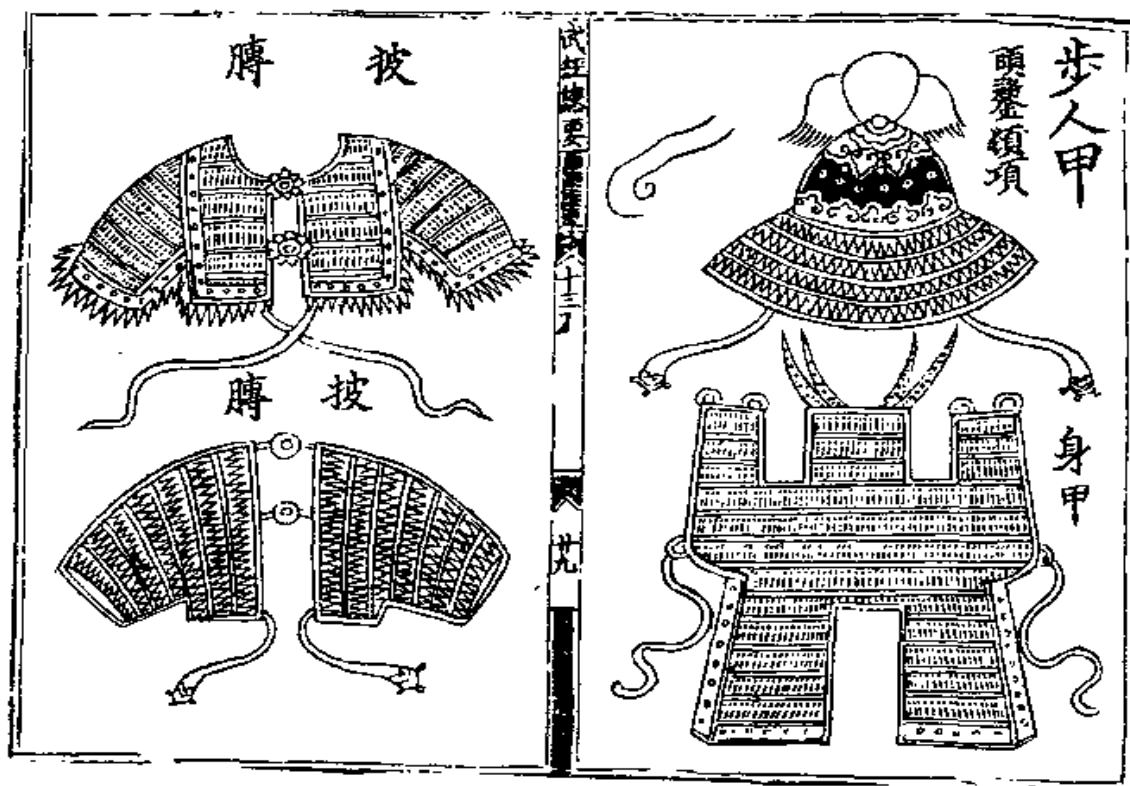 歩人甲
頭鍪頓項
身甲
武經總要
十三
廿九
披膊
披膊